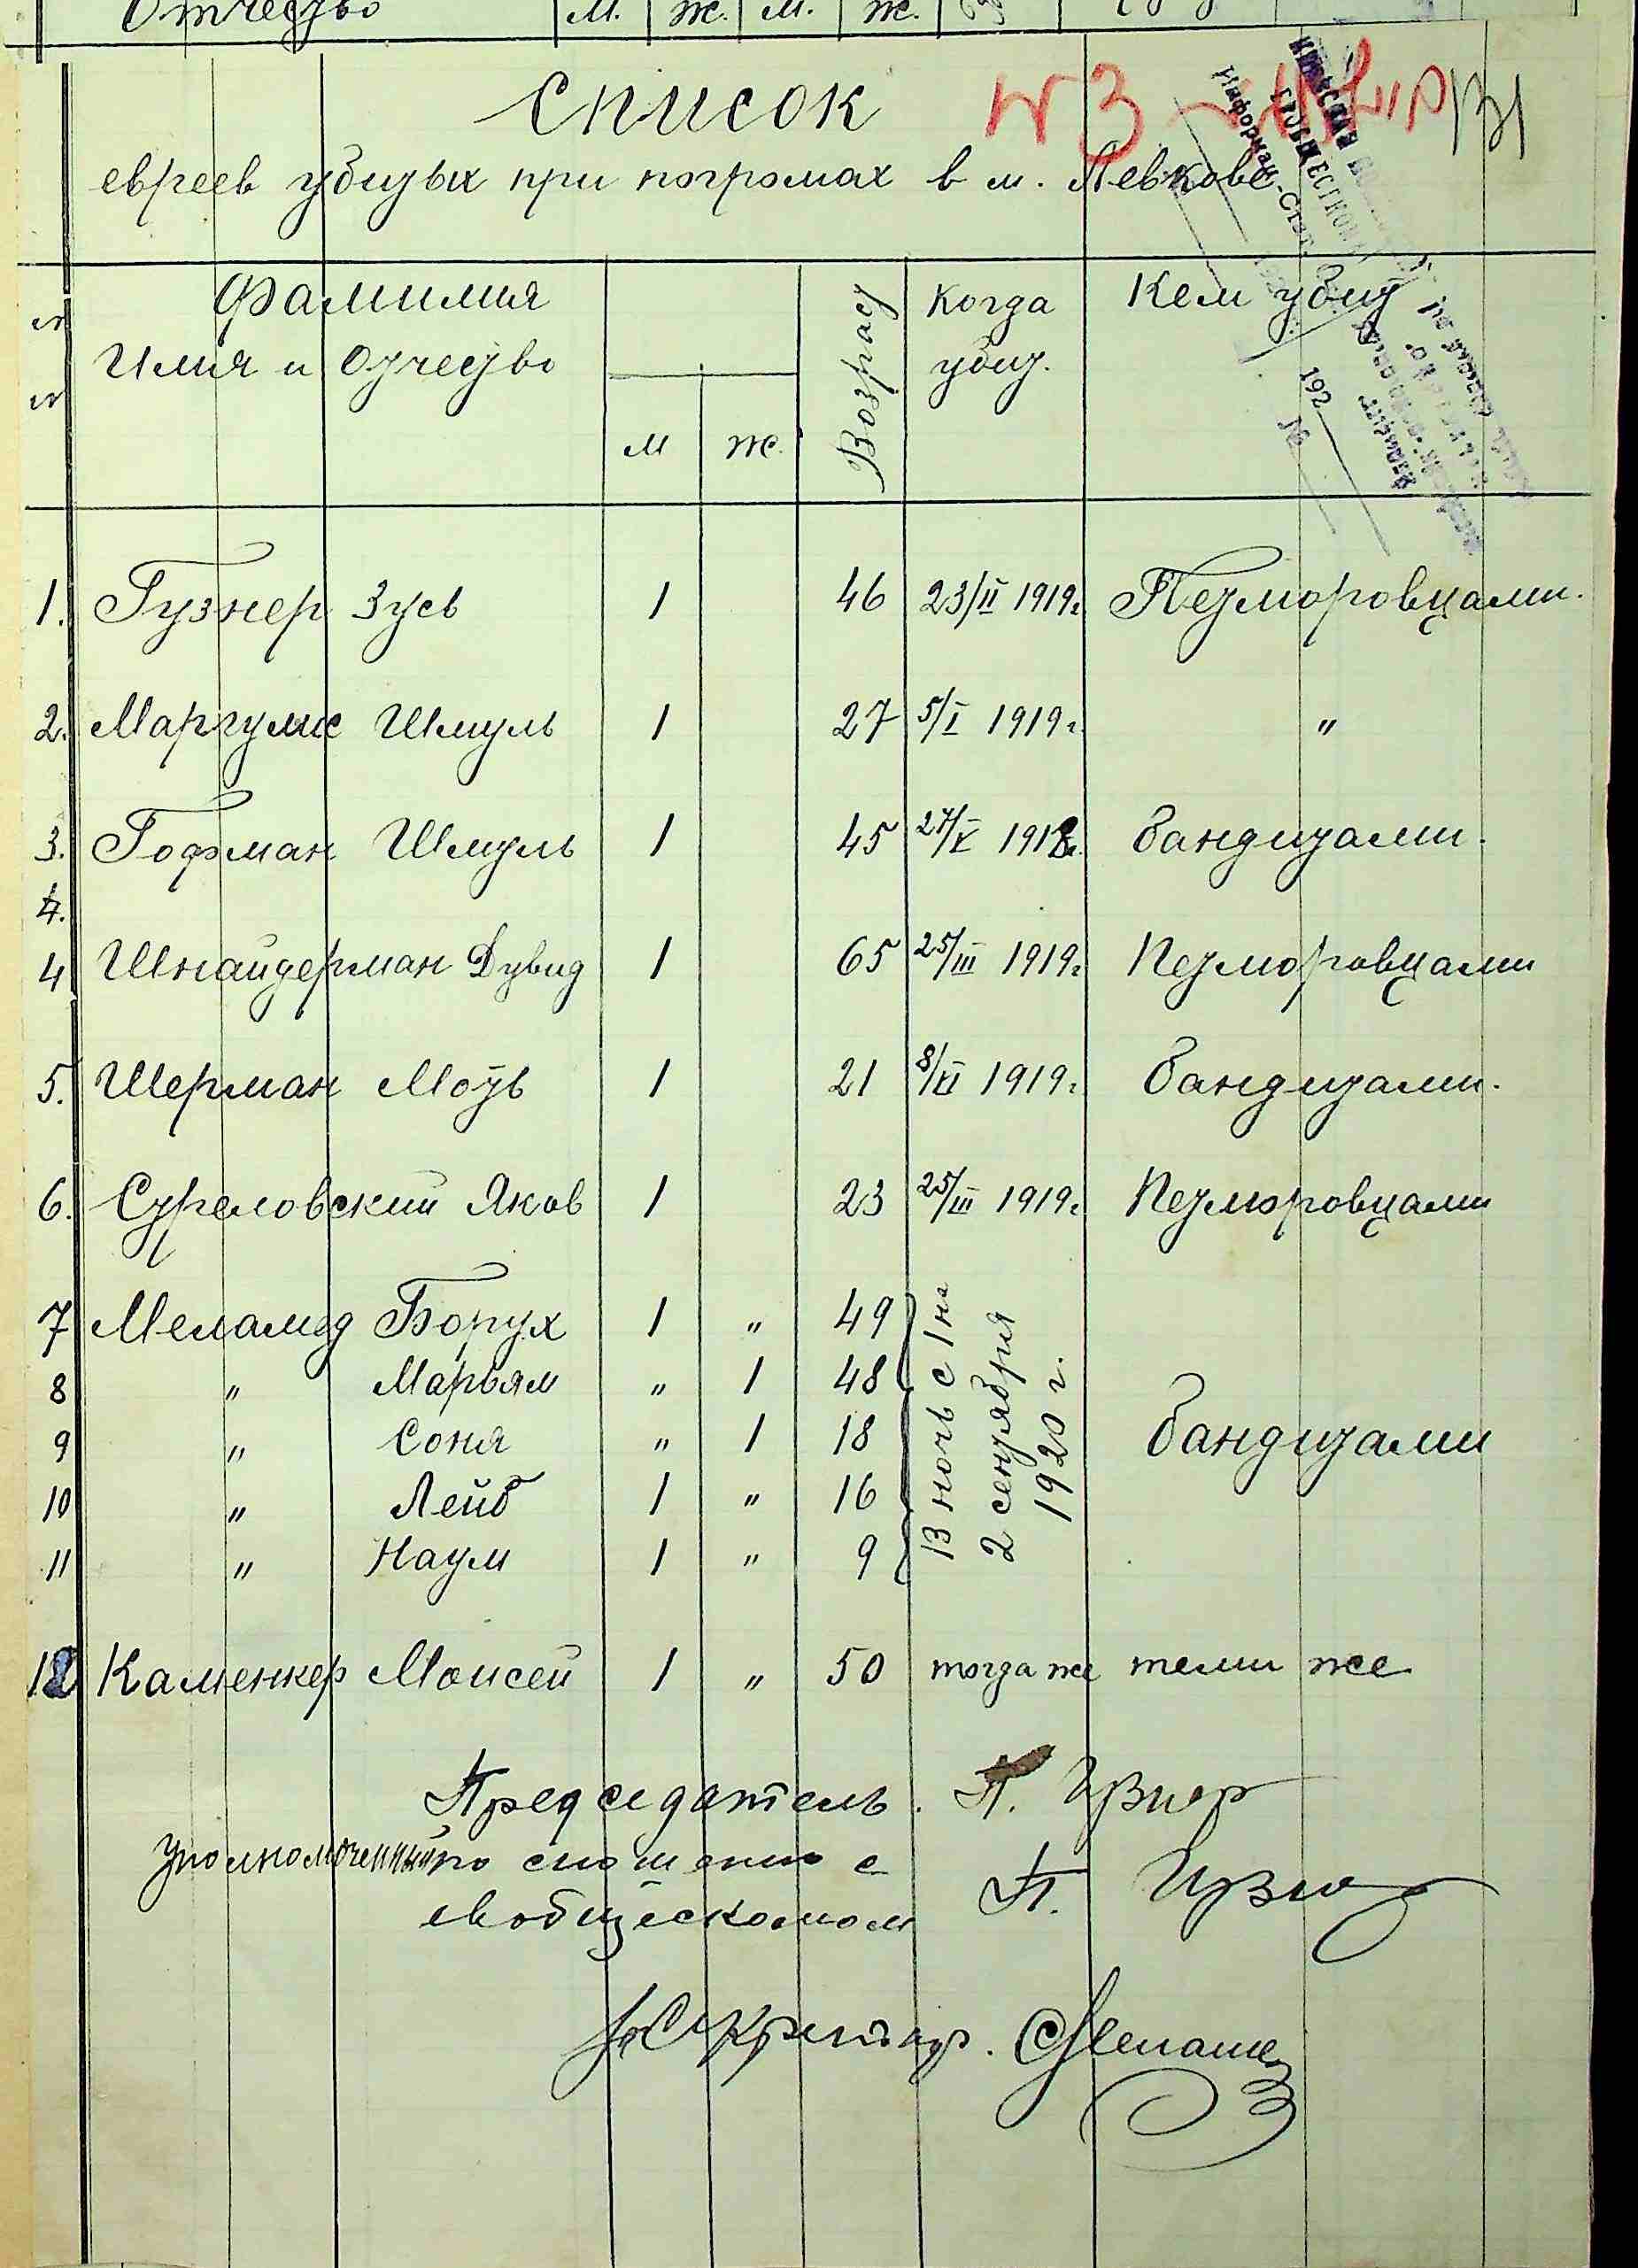 Отчество м. ж. м. ж.
Список №3 131
евреев убитых при погромах в м. Левкове
№
№
Фамилия
Имя и Отчество
м ж.
Возраст
Когда
убит.
Кем убит
1. Гузнер Зусь 1 46 23/II 1919г. Петлюровцами.
2. Маргулис Шмуль 1 27 5/I 1919г. "
3. Гофман Шмуль 1 45 27/X 1918г. бандитами.
4.
4 Шнайдерман Дувид 1 65 25/III 1919г. Петлюровцами
5. Шерман Моть 1 21 8/VI 1919г. бандитами.
6. Стреловский Яков 1 23 25/III 1919г. Петлюровцами
7 Меламед Борух 1 " 49
8 " Марьям " 1 48
9 " Соня " 1 18
10 " Лейб 1 " 16
11 " Наум 1 " 9
В ночь с 1 на
2 сентября
1920 г.
бандитами
12 Каменкер Моисей 1 " 50 тогда же теми же
Председатель. П.
Уполномоченный по сношению с
евобщескомом П.
Секретарь.
192
№